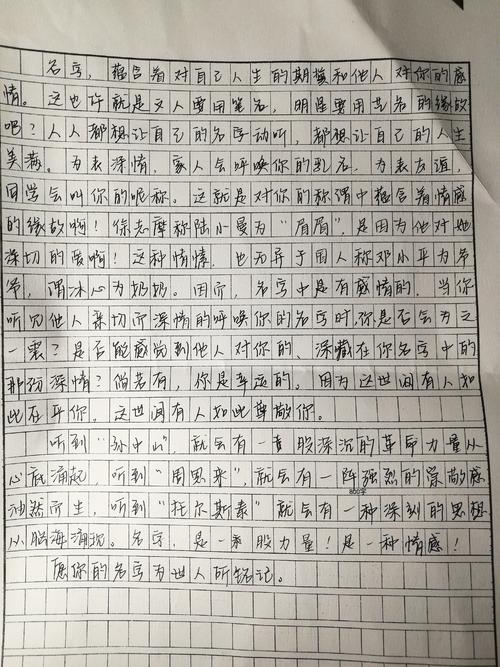 名字，蕴含着对自己人生的期望和他人对你的感
情。这也许就是文人要用笔名，明星要用艺名的缘故
吧？人人都想让自己的名字动听，都想让自己的人生
美满。为表深情，家人会呼唤你的乳名，为表友谊，
同学会叫你的昵称。这就是对你的称谓中蕴含着情感
的缘故啊！徐志摩称陆小曼为“眉眉”，是因为他对她
深切的爱啊！这种情愫，也无异于国人称邓小平为爷
爷，谓冰心为奶奶。因而，名字中是有感情的，当你
听见他人亲切而深情的呼唤你的名字时，你是否会为之
一震？是否能感觉到他人对你的、深藏在你名字中的
那份深情？倘若有，你是幸运的。因为这世间有人如
此在乎你。这世间有人如此尊敬你。
听到“孙中山”，就会有一股深沉的革命力量从
心底涌起，听到“周恩来”，就会有一阵强烈的崇敬感
油然而生，听到“托尔斯泰”就会有一种深刻的思想
800字
从脑海涌现。名字，是一股力量！是一种情感！
愿你的名字为世人所铭记。